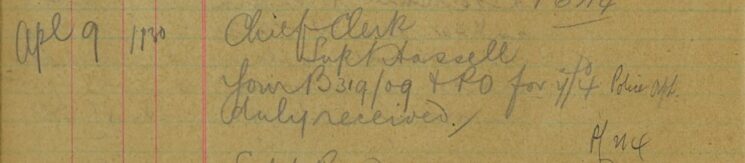 Apl 9 1130 Chief Clerk
Supt Hassell
Your B 319/09 & PO for 4/4 Police Off.
duly received.